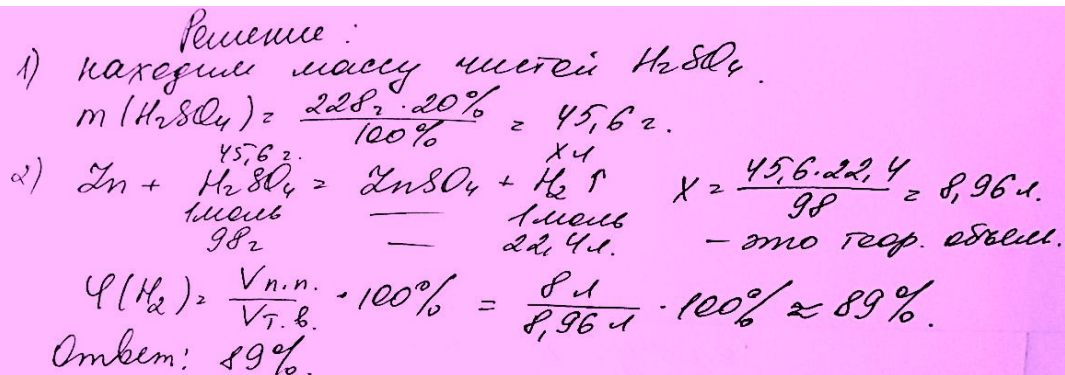 Решение:
1) находим массу чистой H₂SO₄.
m(H₂SO₄) = 228г · 20% / 100% = 45,6 г.
45,6 г. x л
2) Zn + H₂SO₄ = ZnSO₄ + H₂ ↑ X = 45,6 · 22,4 / 98 = 8,96 л.
1моль — 1моль
98г — 22,4л. – это теор. объем.
φ(H₂) = Vп.п. / Vт.в. · 100% = 8 л / 8,96 л · 100% ≈ 89%.
Ответ: 89%.